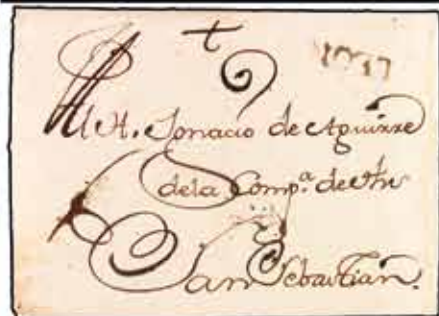 Al H. Ignacio de Aguirre
de la Comp.ª de Jhs
San Sebastian.